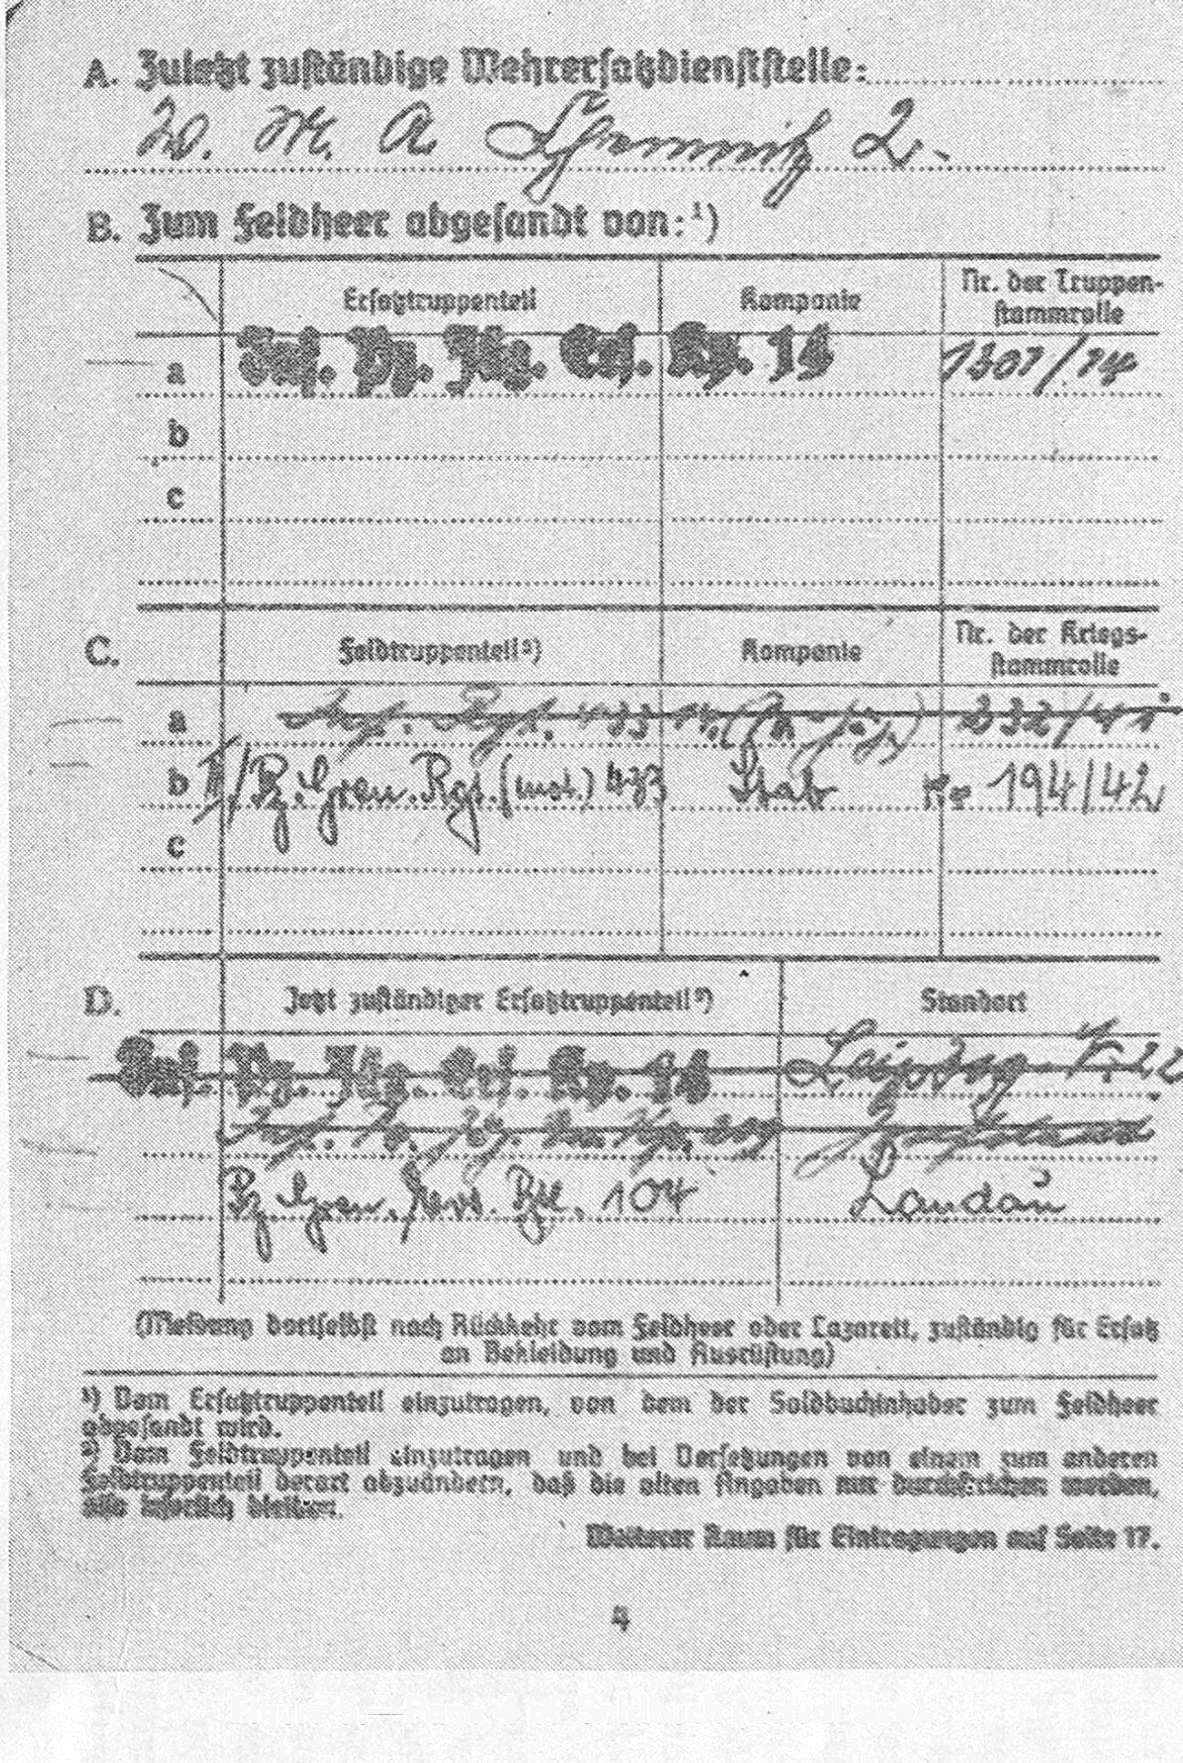 A. Zuletzt zuständige Wehrersatzdienststelle:
W. M. A. Chemnitz 2.
B. Zum Feldheer abgesandt von: ¹)
Ersatztruppenteil Kompanie Nr. der Truppen-
stammrolle
a Inf. Pz. Jäg. Ers. Kp. 14 1307/14
b
c
C. Feldtruppenteil ²) Kompanie Nr. der Kriegs-
stammrolle
a Inf. Rgt. 433 14. 232/41
b II/Pz. Gren. Rgt. (mot.) 433 Stab Nr. 194/42
c
D. Jetzt zuständiger Ersatztruppenteil ²) Standort
Inf. Pz. Jäg. Ers. Kp. 14 Leipzig N. 22
Inf. Pz. Jäg.
Pz. Gren. Btl. 104 Landau
(Meldung dortselbst nach Rückkehr vom Feldheer oder Lazarett, zuständig für Ersatz
an Bekleidung und Ausrüstung)
¹) Vom Ersatztruppenteil einzutragen, von dem der Soldbuchinhaber zum Feldheer
abgesandt wird.
²) Vom Feldtruppenteil einzutragen und bei Versetzungen von einem zum anderen
Feldtruppenteil derart abzuändern, daß die alten Angaben nur durchstrichen werden,
also leserlich bleiben.
Weiterer Raum für Eintragungen auf Seite 17.
4